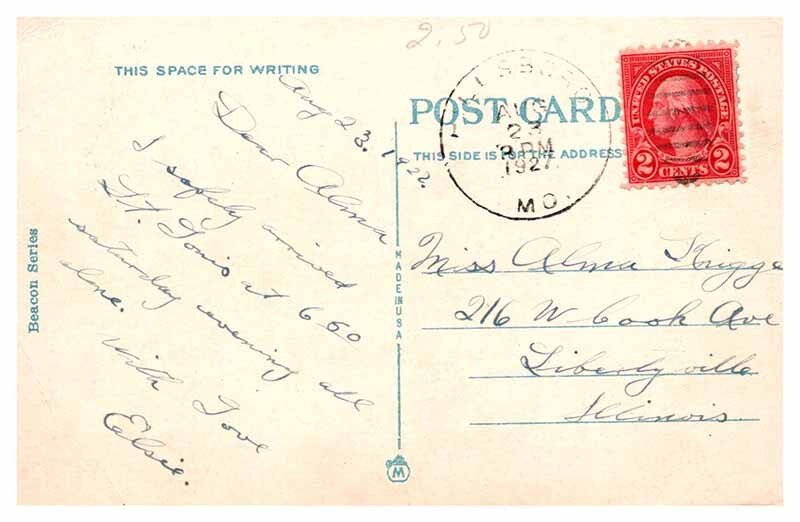 2.50
THIS SPACE FOR WRITING
Aug 23, 1922.
Dear Alma
I safely arrived
St. Louis at 6 60
saturday evening all
alone.
With Love
Ealsie.
Beacon Series
MADE IN USA
M
POST CARD
THIS SIDE IS FOR THE ADDRESS
AUG
23
PM
1927
MO.
UNITED STATES POSTAGE
2 CENTS 2
Miss Alma
216 W Cook Ave
Libertyville
Illinois.